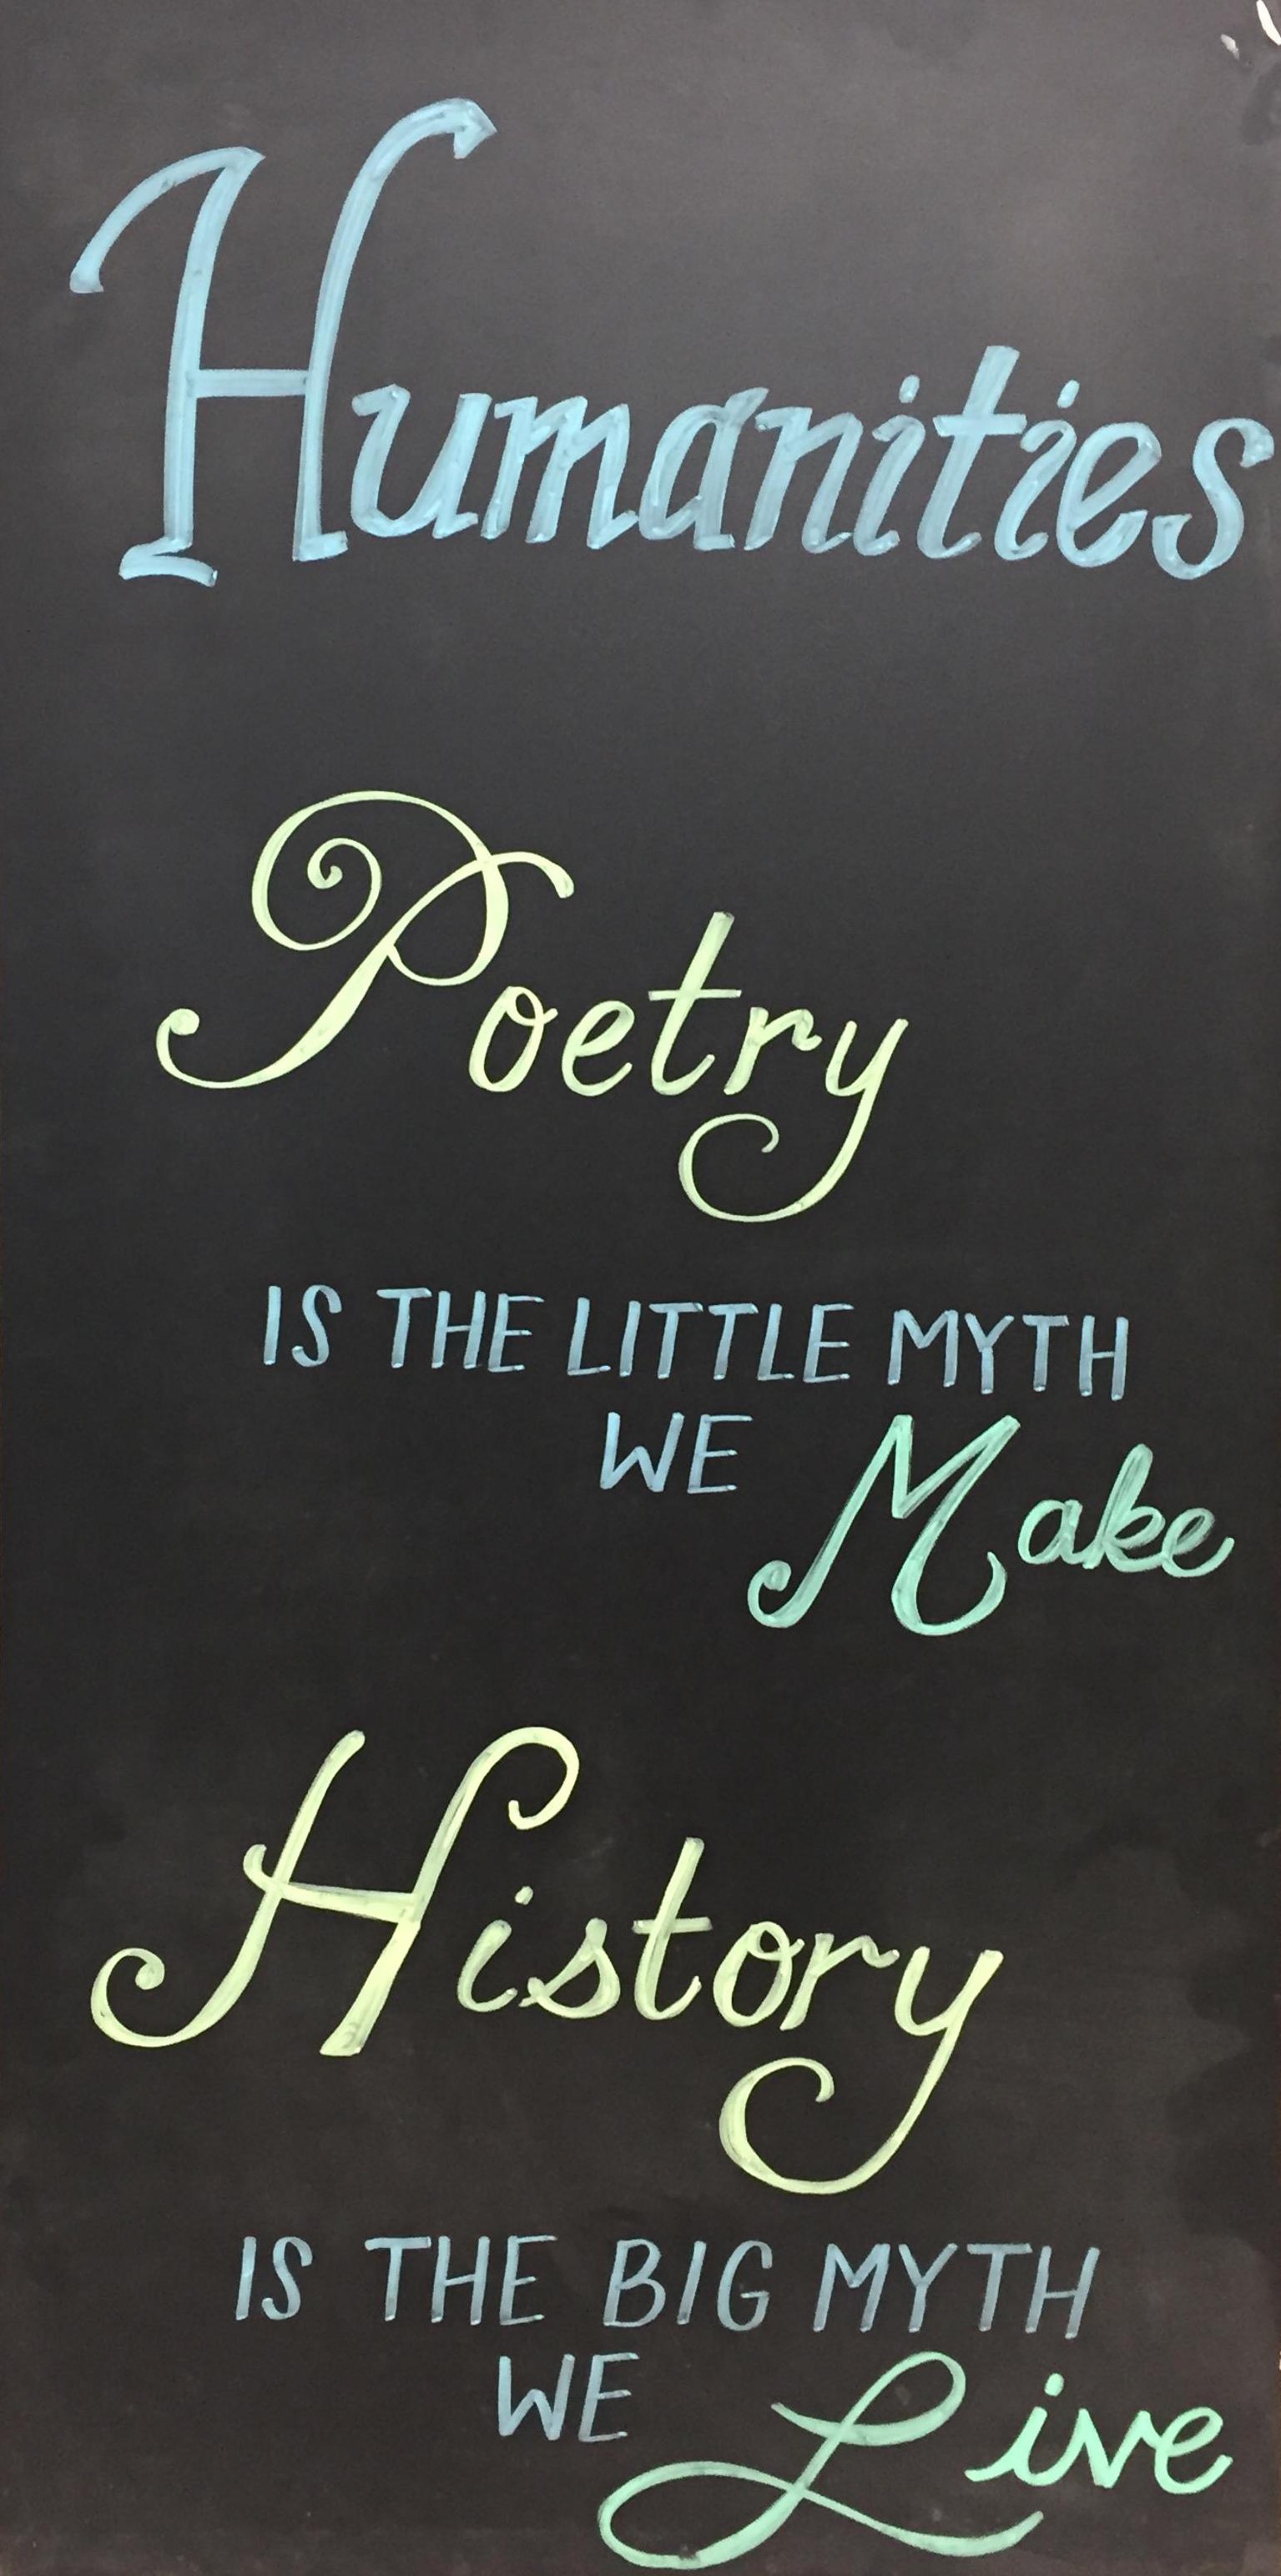 Humanities
Poetry
IS THE LITTLE MYTH
WE Make
History
IS THE BIG MYTH
WE Live